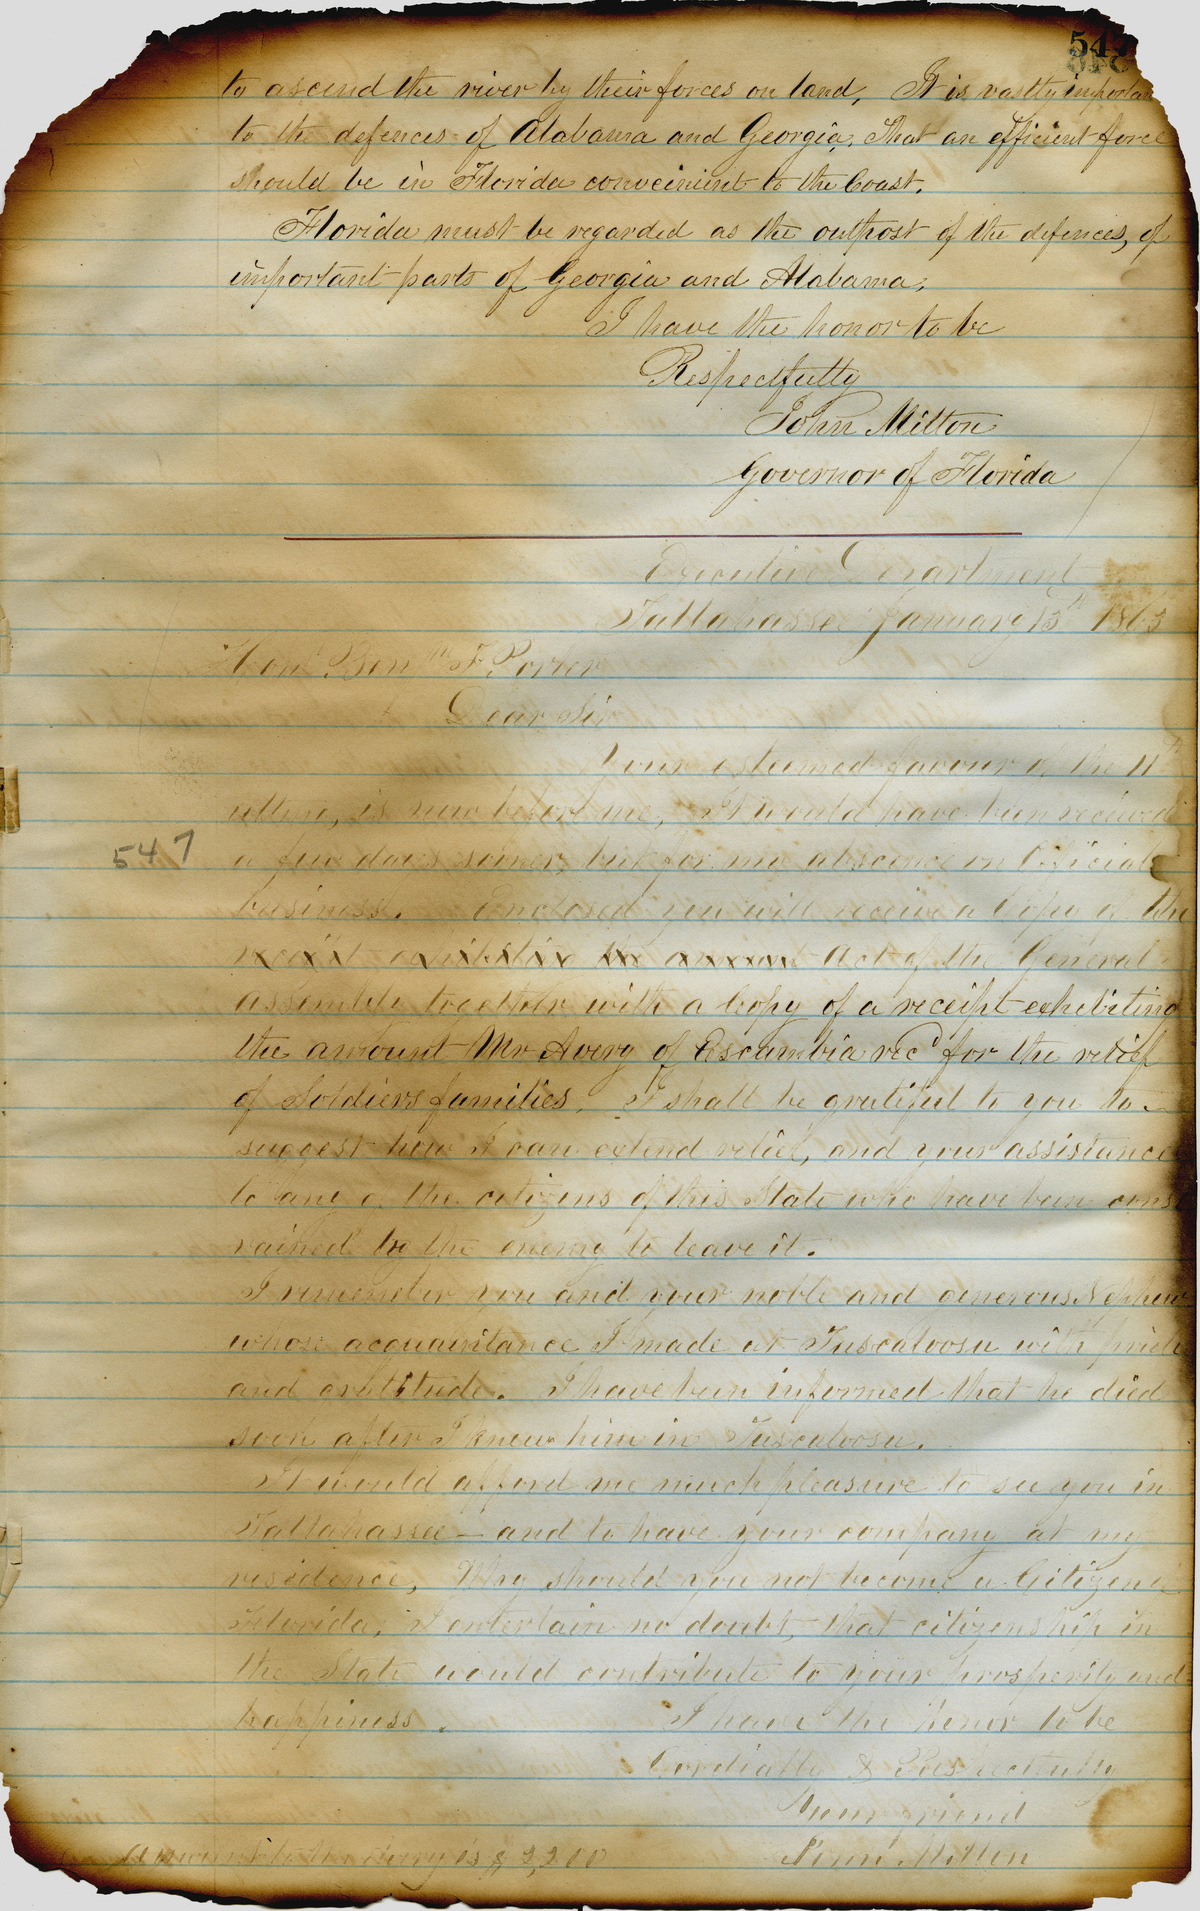 547
to ascend the river by their forces on land, It is vastly importan
to the defences of Alabama and Georgia, that an efficient force
should be in Florida conveinient to the Coast.
Florida must be regarded as the outpost of the defences, of
important parts of Georgia and Alabama,
I have the honor to be
Respectfully
John Milton
Governor of Florida
Executive Department
Tallahassee January 13th 1863
Honl. Benjm F. Porter
Dear Sir
Your esteemed favour of the 11th
ultimo, is now before me, It would have been received
547
a few days sooner, but for my abscence on Official
business. Enclosed you will receive a Copy of the
Act of the General
Assembly together with a Copy of a receipt exhibiting
the amount Mr Avery of Escambia recd for the relief
of Soldiers families. I shall be gratiful to you to
suggest how I can extend relief, and your assistance
to any of the citizens of this State who have been const
rained by the enemy to leave it.
I remember you and your noble and generous Nephew
whose acquaintance I made at Tuscaloosa with pride
and gratitude. I have been informed that he died
soon after I knew him in Tuscaloosa.
It would afford me much pleasure to see you in
Tallahassee — and to have your company at my
residence, Why should you not become a Citizen of
Florida, I entertain no doubt, that citizenship in
the State would contribute to your prosperity and
happiness. I have the honor to be
Cordially & Respectfully
Your friend
John Milton
Amount to Mr Avery is $2,200